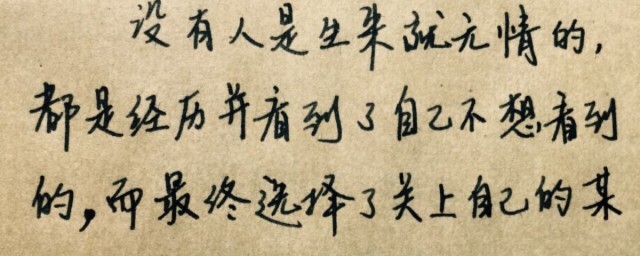 没有人是生来就无情的,
都是经历并看到了自己不想看到
的,而最终选择了关上自己的某